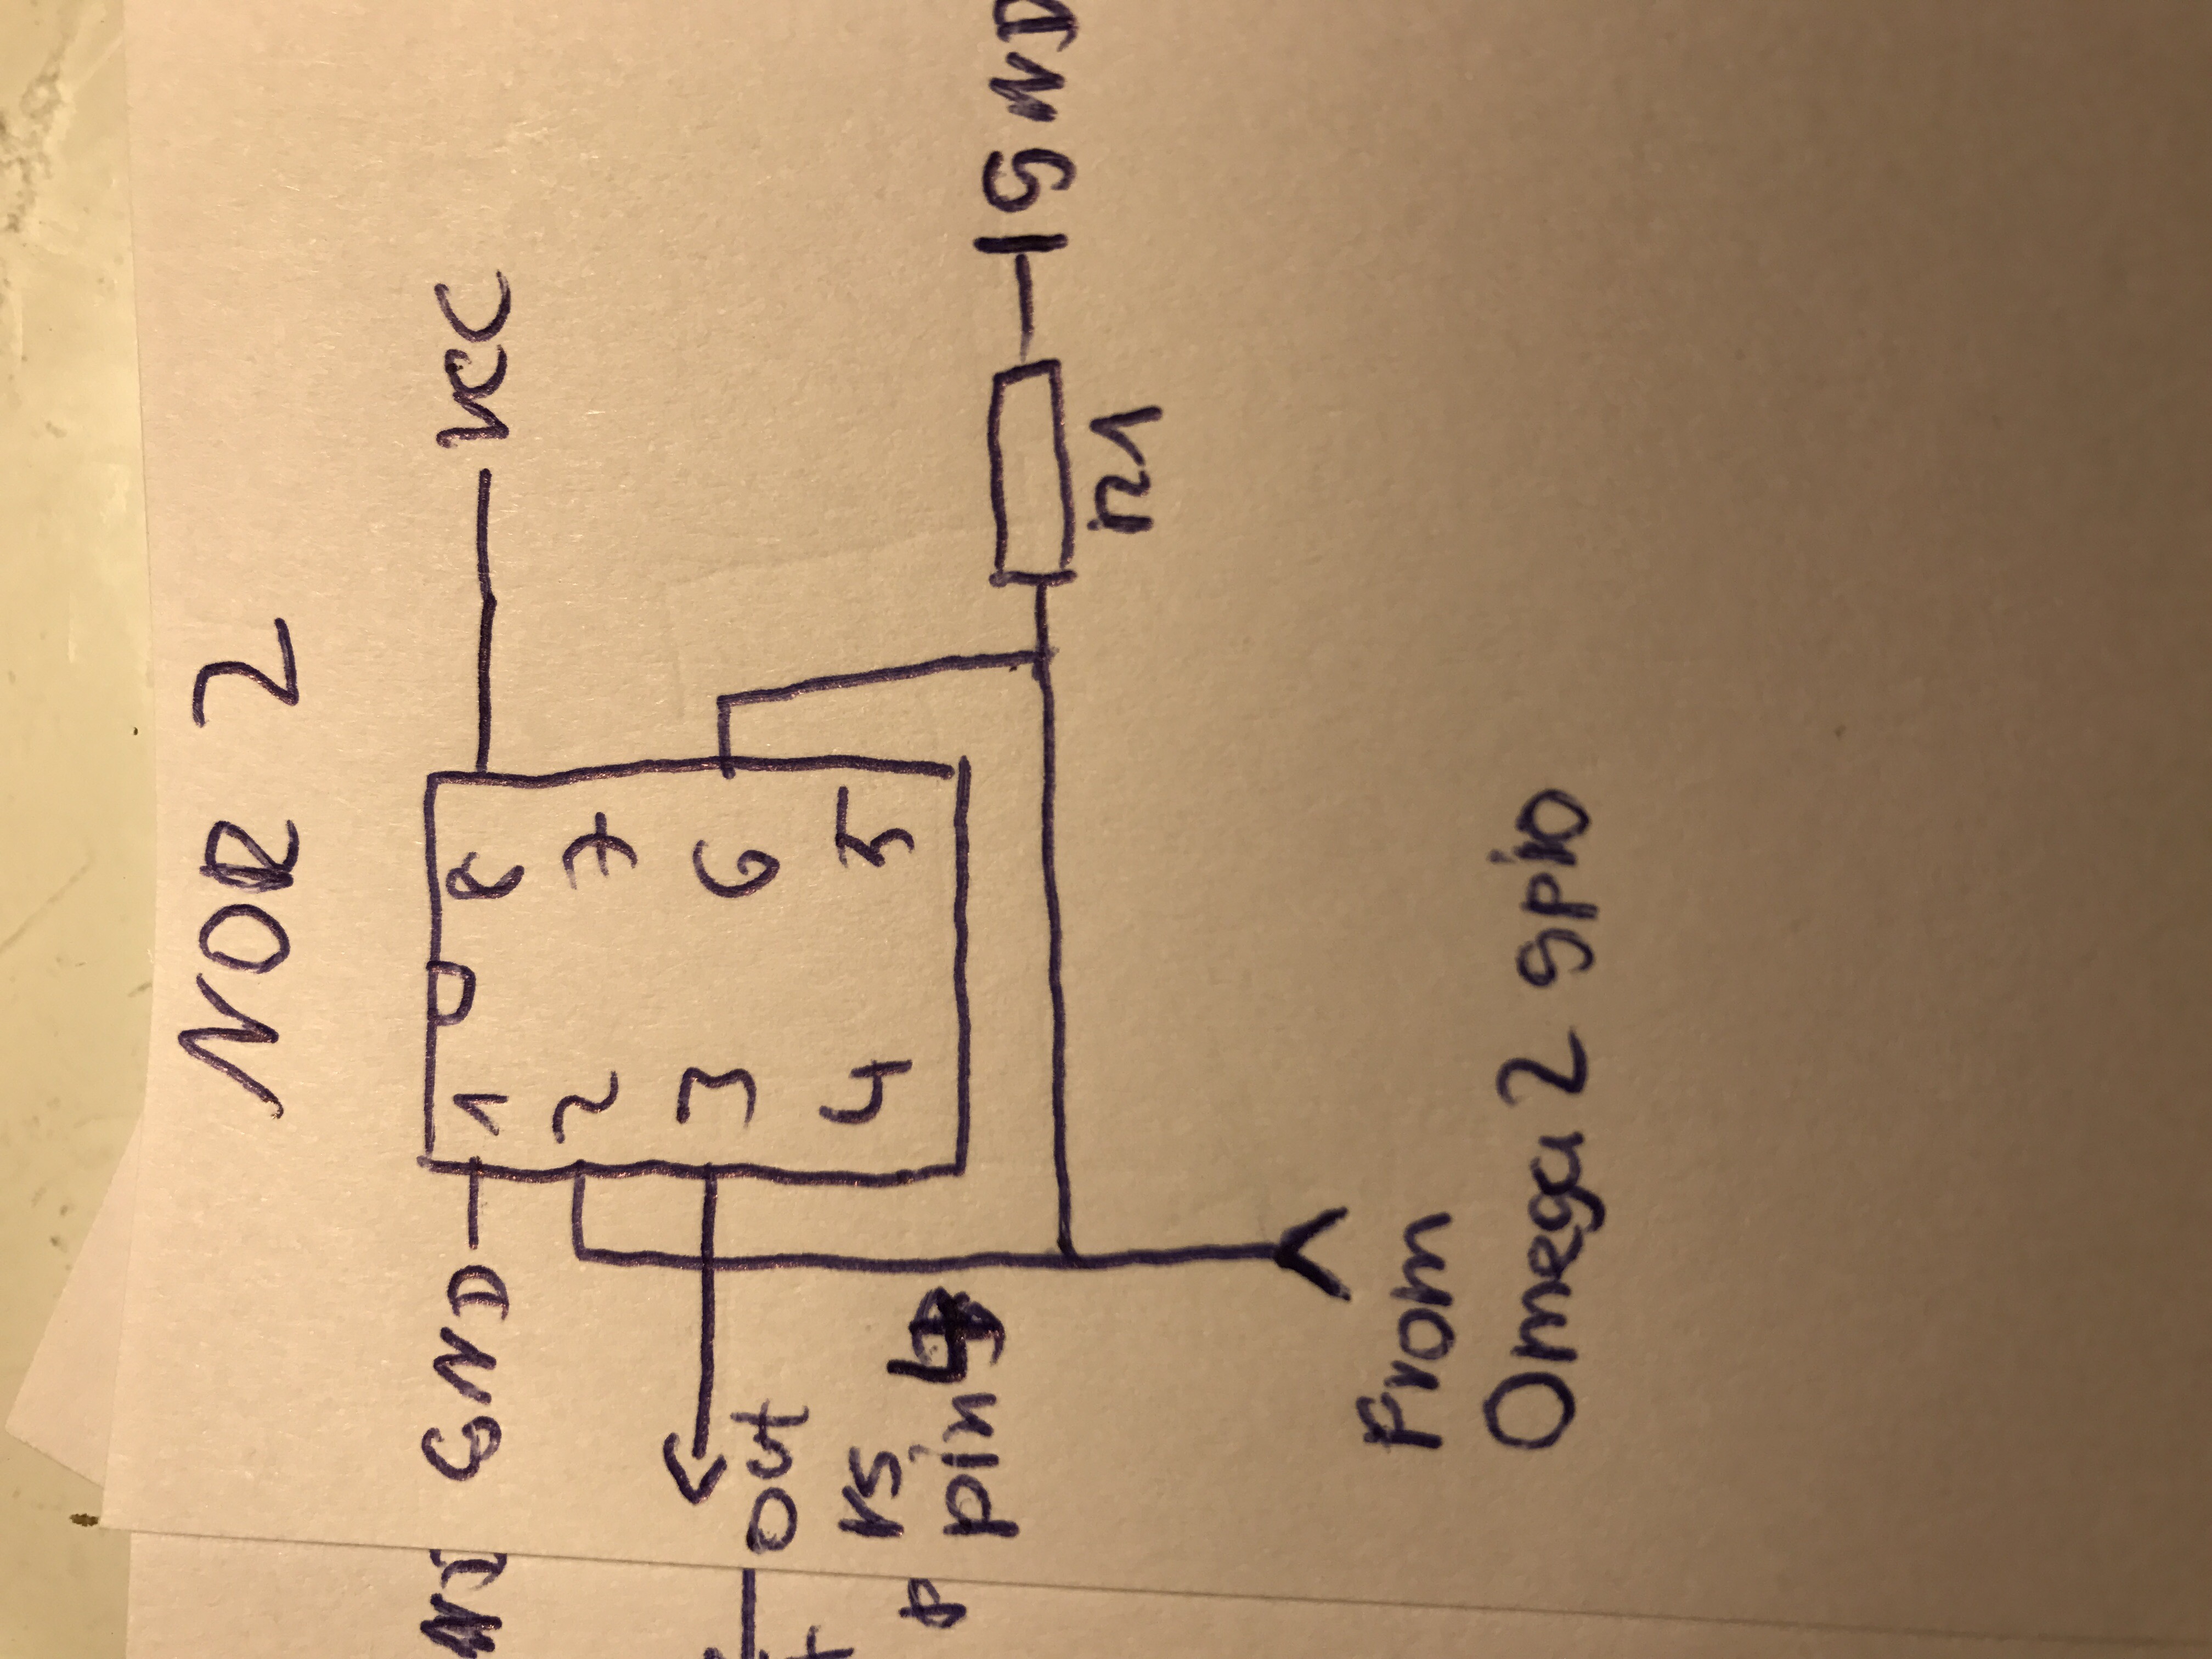 NOR 2
GND 1 8 VCC
2 7
3 6
out
rs
4 5
pin 4
GND
R1
From
Omega 2 gpio